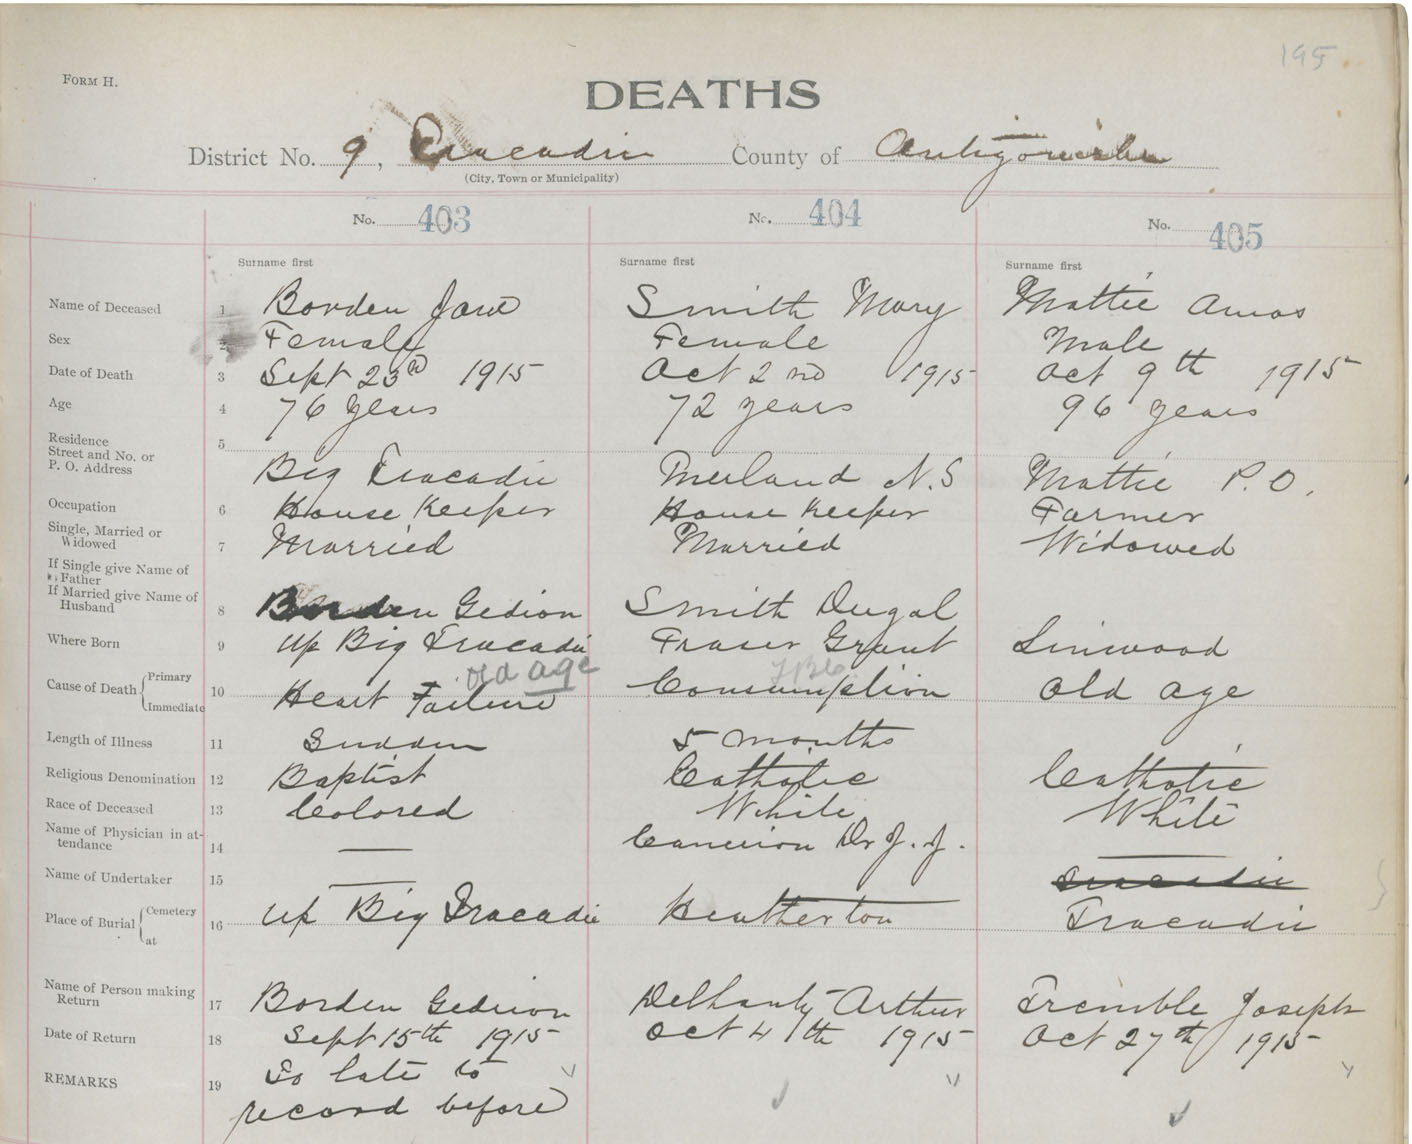 195
FORM H.
DEATHS
District No. 9, Tracadie County of Antigonishe
(City, Town or Municipality)
No. 403 No. 404 No. 405
Surname first Surname first Surname first
Name of Deceased 1 Borden Jane Smith Mary Mattie Amos
Sex 2 Female Female Male
Date of Death 3 Sept 23rd 1915 Oct 2nd 1915 Oct 9th 1915
Age 4 76 years 72 years 96 years
Residence
Street and No. or 5
P. O. Address Big Tracadie Merland N.S Mattie P.O.
Occupation 6 House Keeper House Keeper Farmer
Single, Married or
Widowed 7 Married Married Widowed
If Single give Name of
Father
If Married give Name of
Husband 8 Borden Gedion Smith Dugal
Where Born 9 Up Big Tracadie Fraser Grant Linwood
old age TBC
Cause of Death Primary
Immediate 10 Heart Failure Consumption Old Age
Length of Illness 11 Sudden 5 months
Religious Denomination 12 Baptist Catholic Catholic
Race of Deceased 13 Colored White White
Name of Physician in at-
tendance 14 — Cameron Dr J. J.
Name of Undertaker 15 — — Tracadie
Place of Burial Cemetery
at 16 Up Big Tracadie Heatherton Tracadie
Name of Person making
Return 17 Borden Gedieon Delhanty Arthur Tremble Joseph
Date of Return 18 Sept 15th 1915 Oct 4th 1915 Oct 27th 1915
REMARKS 19 To late to
record before